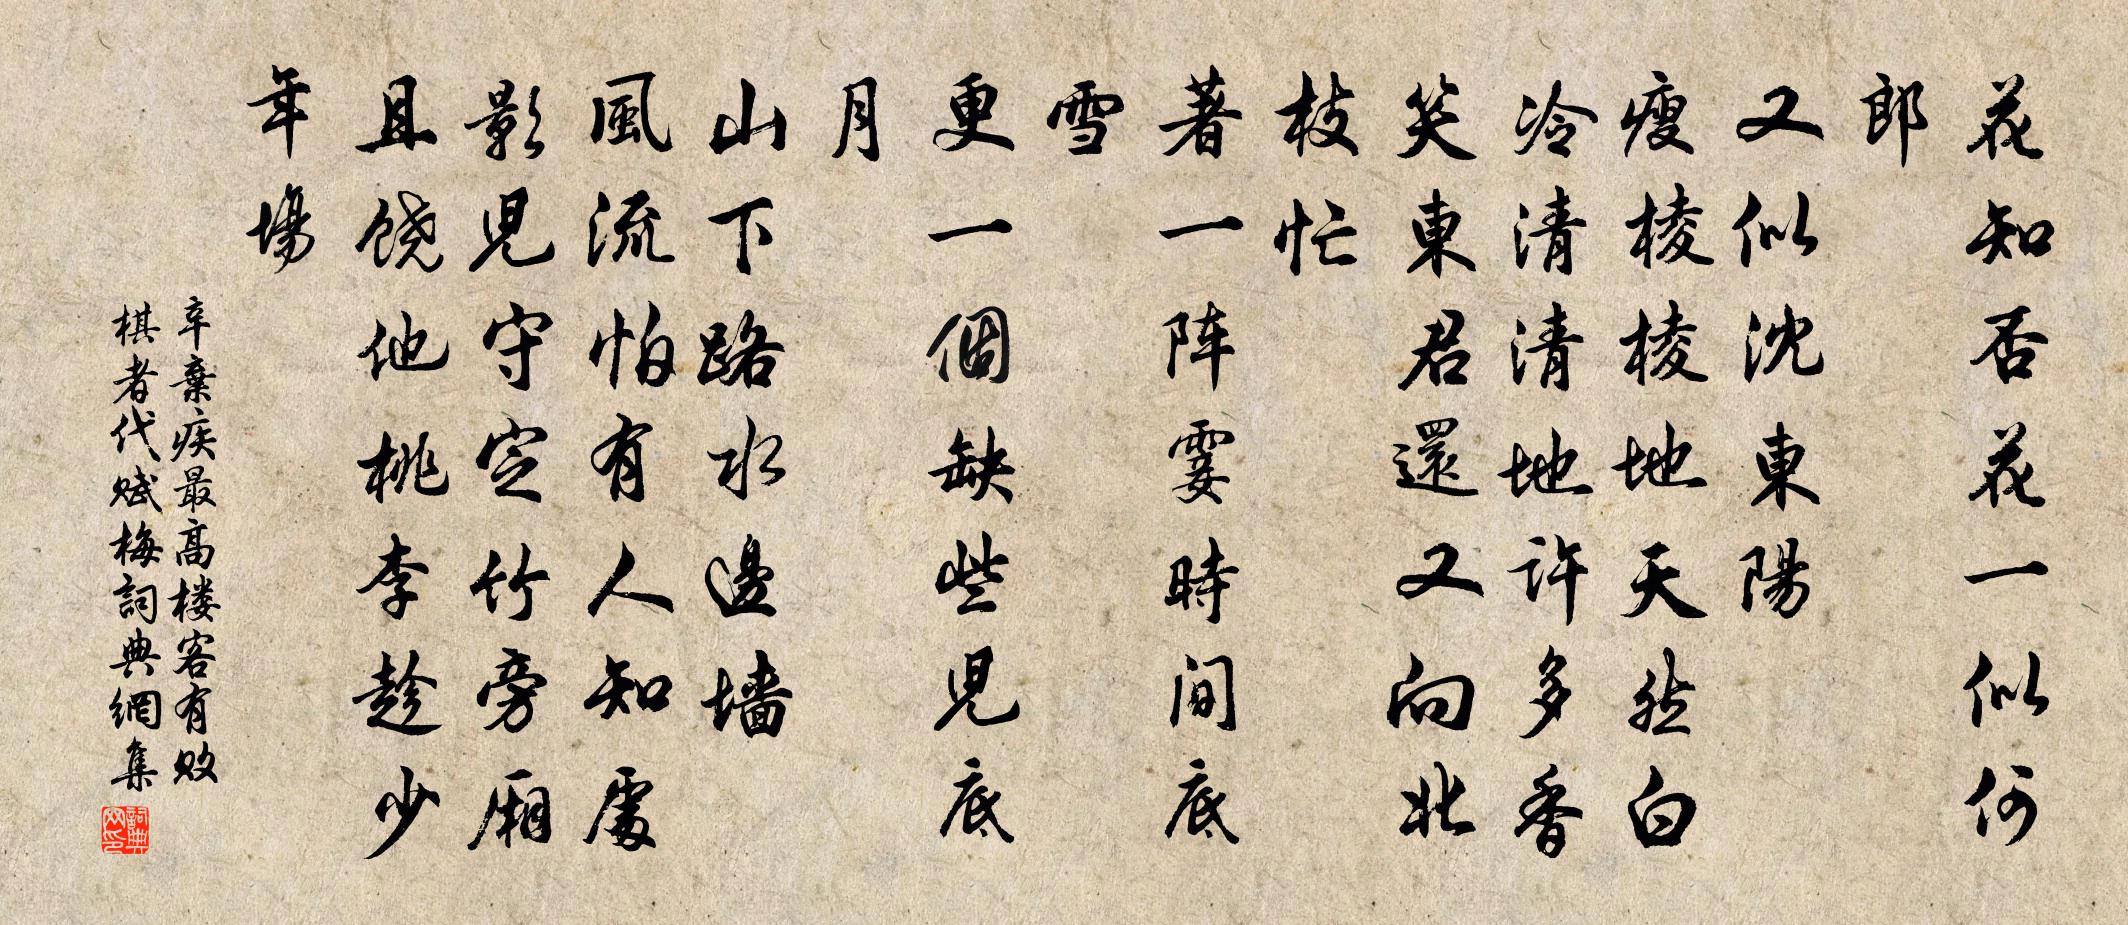 花知否花一似何
郎
又似沈東陽
瘦棱棱地天然白
冷清清地许多香
笑東君還又向北
枝忙
著一阵霎時间底
雪
更一個缺些兒底
月
山下路水邊墙
風流怕有人知處
影兒守定竹旁厢
且饶他桃李趁少
年場
辛棄疾最高楼客有败
棋者代赋梅詞典網集
詞典
网印